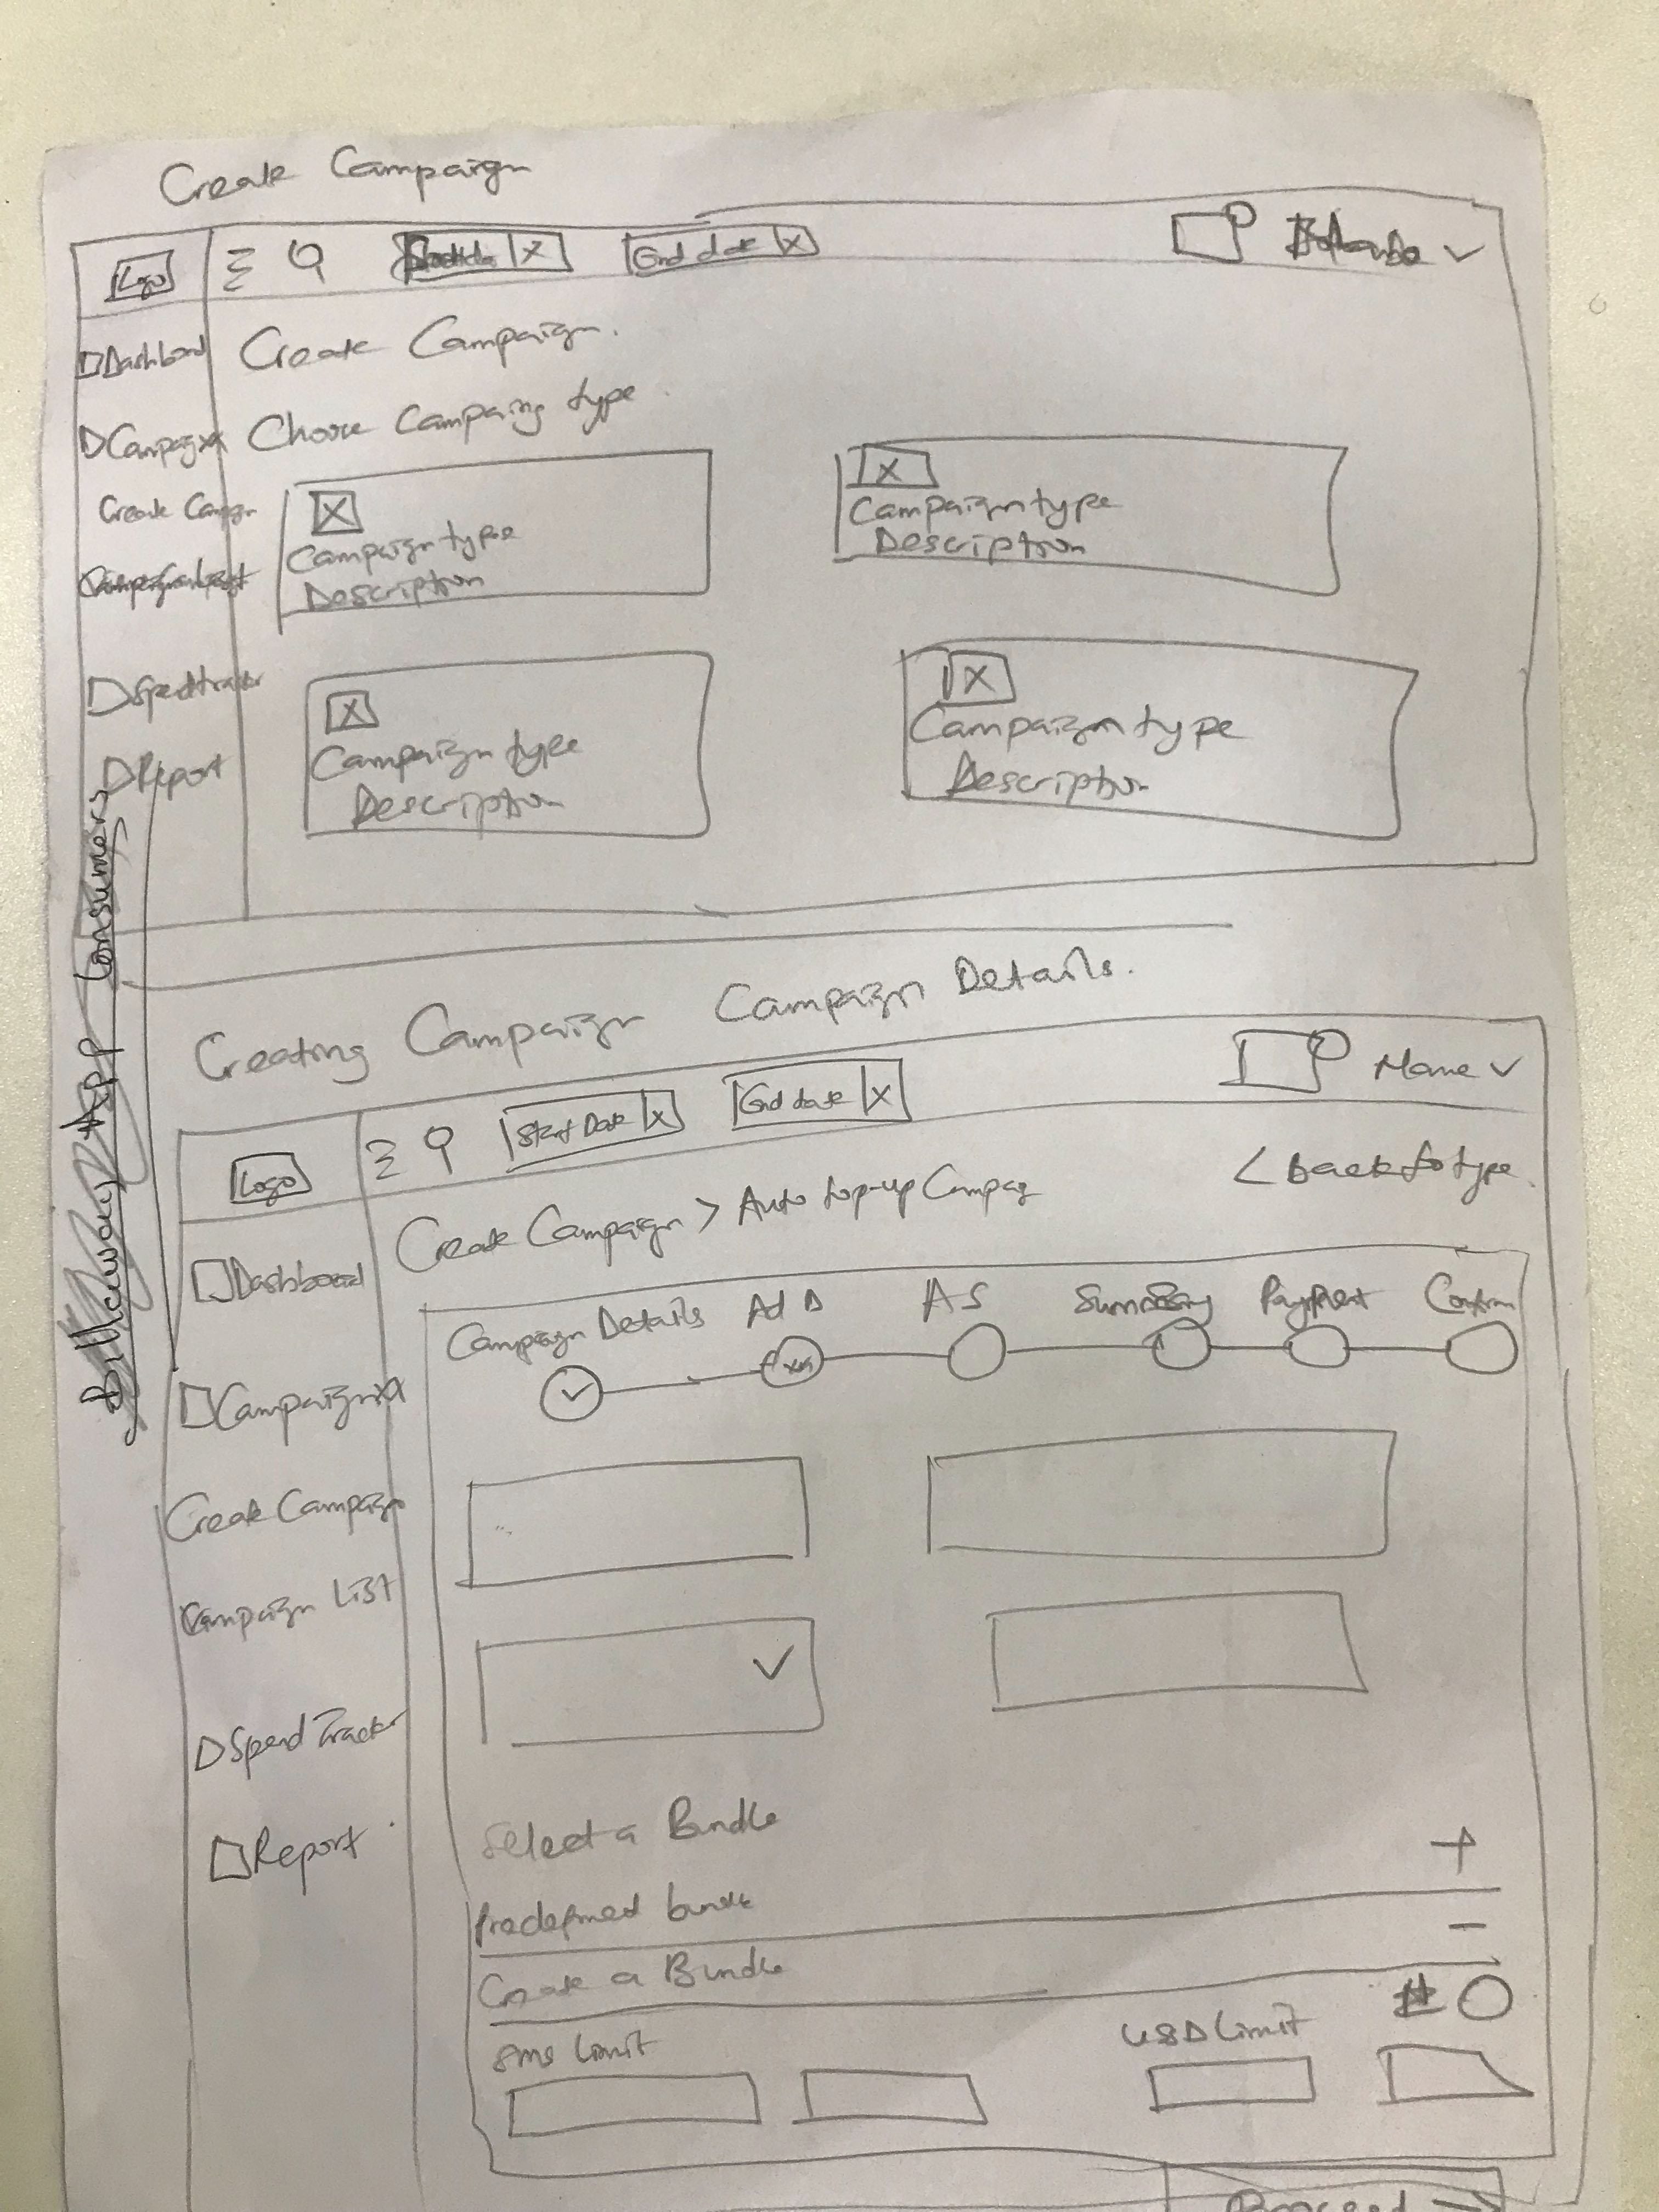 Create Campaign
Logo
End date X
Dashboard
Create Campaign.
Campaign
Choose Campaing type
Create Campgn
X
Campaign type
Description
X
Campaign type
Description
Spendtracker
X
Campaign type
Description
X
Campaign type
Description
Report
Consumers
App
Creating Campaign Campaign Details.
Logo
Start Date X
End date X
Name
Create Campaign > Auto top-up Campag
< Back to type
Dashboard
Campaign
Create Campaign
Campaign List
Spend Tracker
Report
Campaign Details
Ad D
AS
Summary
Payment
Confirm
Select a Bundle
Predefined bundle +
Create a Bundle −
SMS Limit
USD Limit
Proceed →